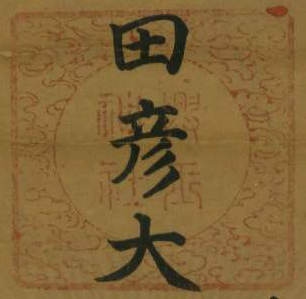 田彦大